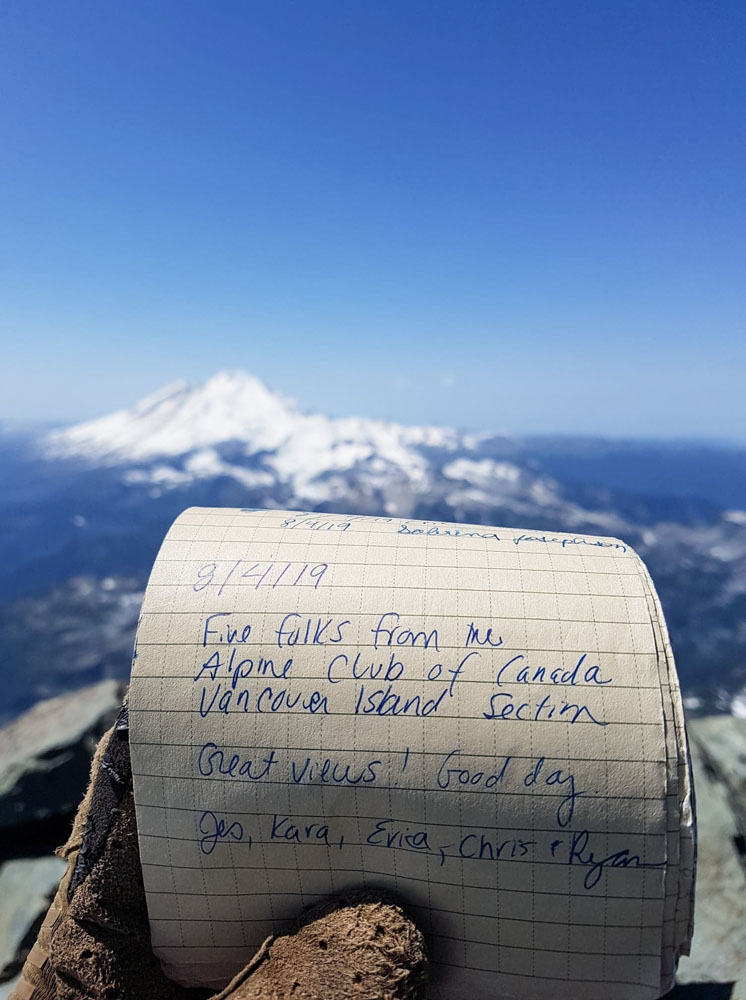 8/4/19 Sabrina Josephson
8/4/19
Five folks from the
Alpine Club of Canada
Vancouver Island Section
Great views! Good day.
Jes, Kara, Erica, Chris & Ryan